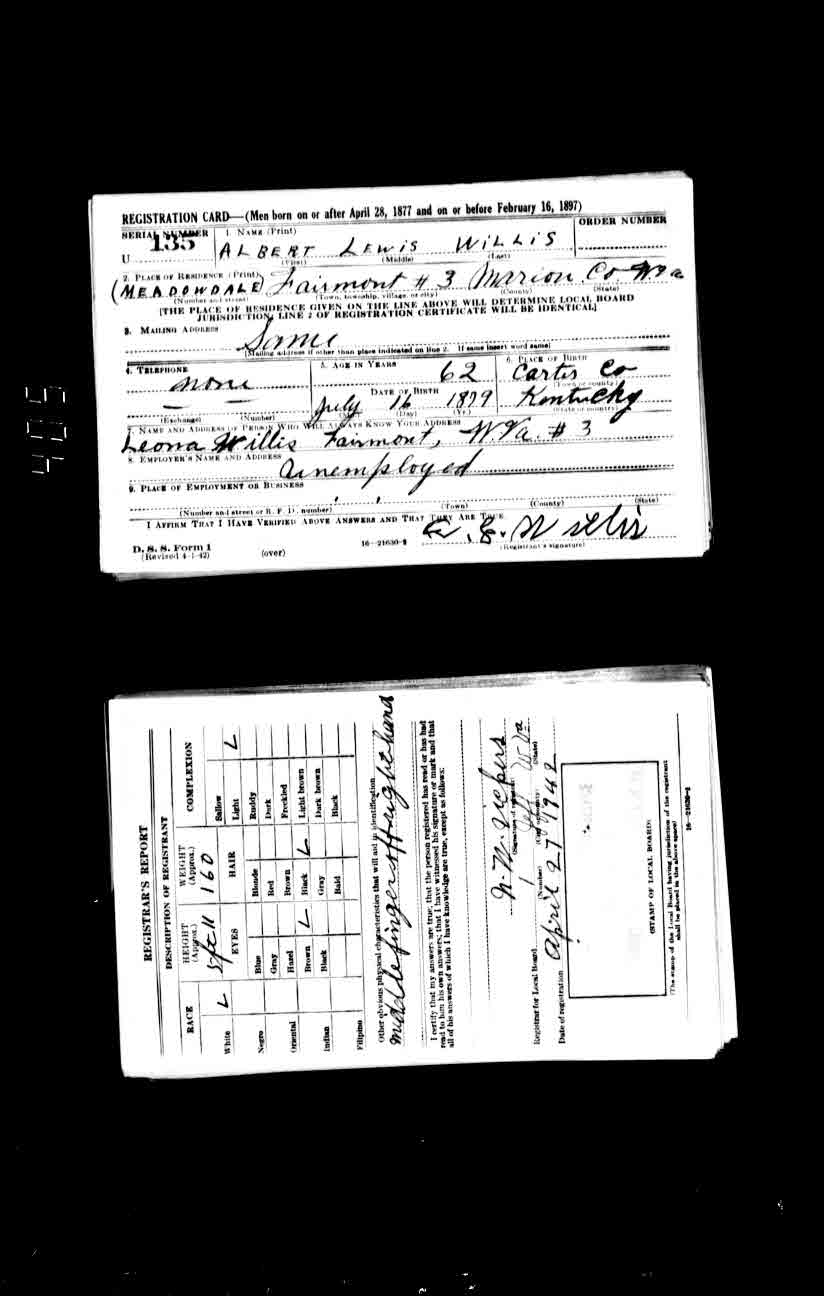 REGISTRATION CARD—(Men born on or after April 28, 1877 and on or before February 16, 1897)
SERIAL NUMBER
1. NAME (Print)
ORDER NUMBER
U 135
ALBERT LEWIS WILLIS
(First) (Middle) (Last)
2. PLACE OF RESIDENCE (Print)
(MEADOWDALE) Fairmont # 3 Marion Co W.Va
(Number and street) (Town, township, village, or city) (County) (State)
[THE PLACE OF RESIDENCE GIVEN ON THE LINE ABOVE WILL DETERMINE LOCAL BOARD
JURISDICTION; LINE 2 OF REGISTRATION CERTIFICATE WILL BE IDENTICAL]
3. MAILING ADDRESS
Same
[Mailing address if other than place indicated on line 2. If same insert word same]
4. TELEPHONE
5. AGE IN YEARS
6. PLACE OF BIRTH
none
62
Carter Co
(Town or county)
DATE OF BIRTH
July 16 1879
Kentucky
(Exchange) (Number)
(Mo.) (Day) (Yr.)
(State or country)
7. NAME AND ADDRESS OF PERSON WHO WILL ALWAYS KNOW YOUR ADDRESS
Leona Willis Fairmont, W.Va. # 3
8. EMPLOYER'S NAME AND ADDRESS
Unemployed
9. PLACE OF EMPLOYMENT OR BUSINESS
(Number and street or R. F. D. number) (Town) (County) (State)
I AFFIRM THAT I HAVE VERIFIED ABOVE ANSWERS AND THAT THEY ARE TRUE.
D. S. S. Form 1
(Revised 4-1-42)
(over)
16—21630-2
(Registrant's signature)
405
REGISTRAR'S REPORT
DESCRIPTION OF REGISTRANT
RACE
HEIGHT
(Approx.)
WEIGHT
(Approx.)
COMPLEXION
White
5 ft 11
160
Sallow
EYES
HAIR
Light
Negro
Blue
Blonde
Ruddy
Gray
Red
Dark
Oriental
Hazel
Brown
Freckled
Brown
Black
Light brown
Indian
Black
Gray
Dark brown
Bald
Black
Filipino
Other obvious physical characteristics that will aid in identification
middle finger off right hand
I certify that my answers are true; that the person registered has read or has had
read to him his own answers; that I have witnessed his signature or mark and that
all of his answers of which I have knowledge are true, except as follows:
(Signature of registrar)
Registrar for Local Board 1 W Va
(Number) (City or county) (State)
Date of registration April 27 1942
(STAMP OF LOCAL BOARD)
(The stamp of the Local Board having jurisdiction of the registrant
shall be placed in the above space)
16—21630-2